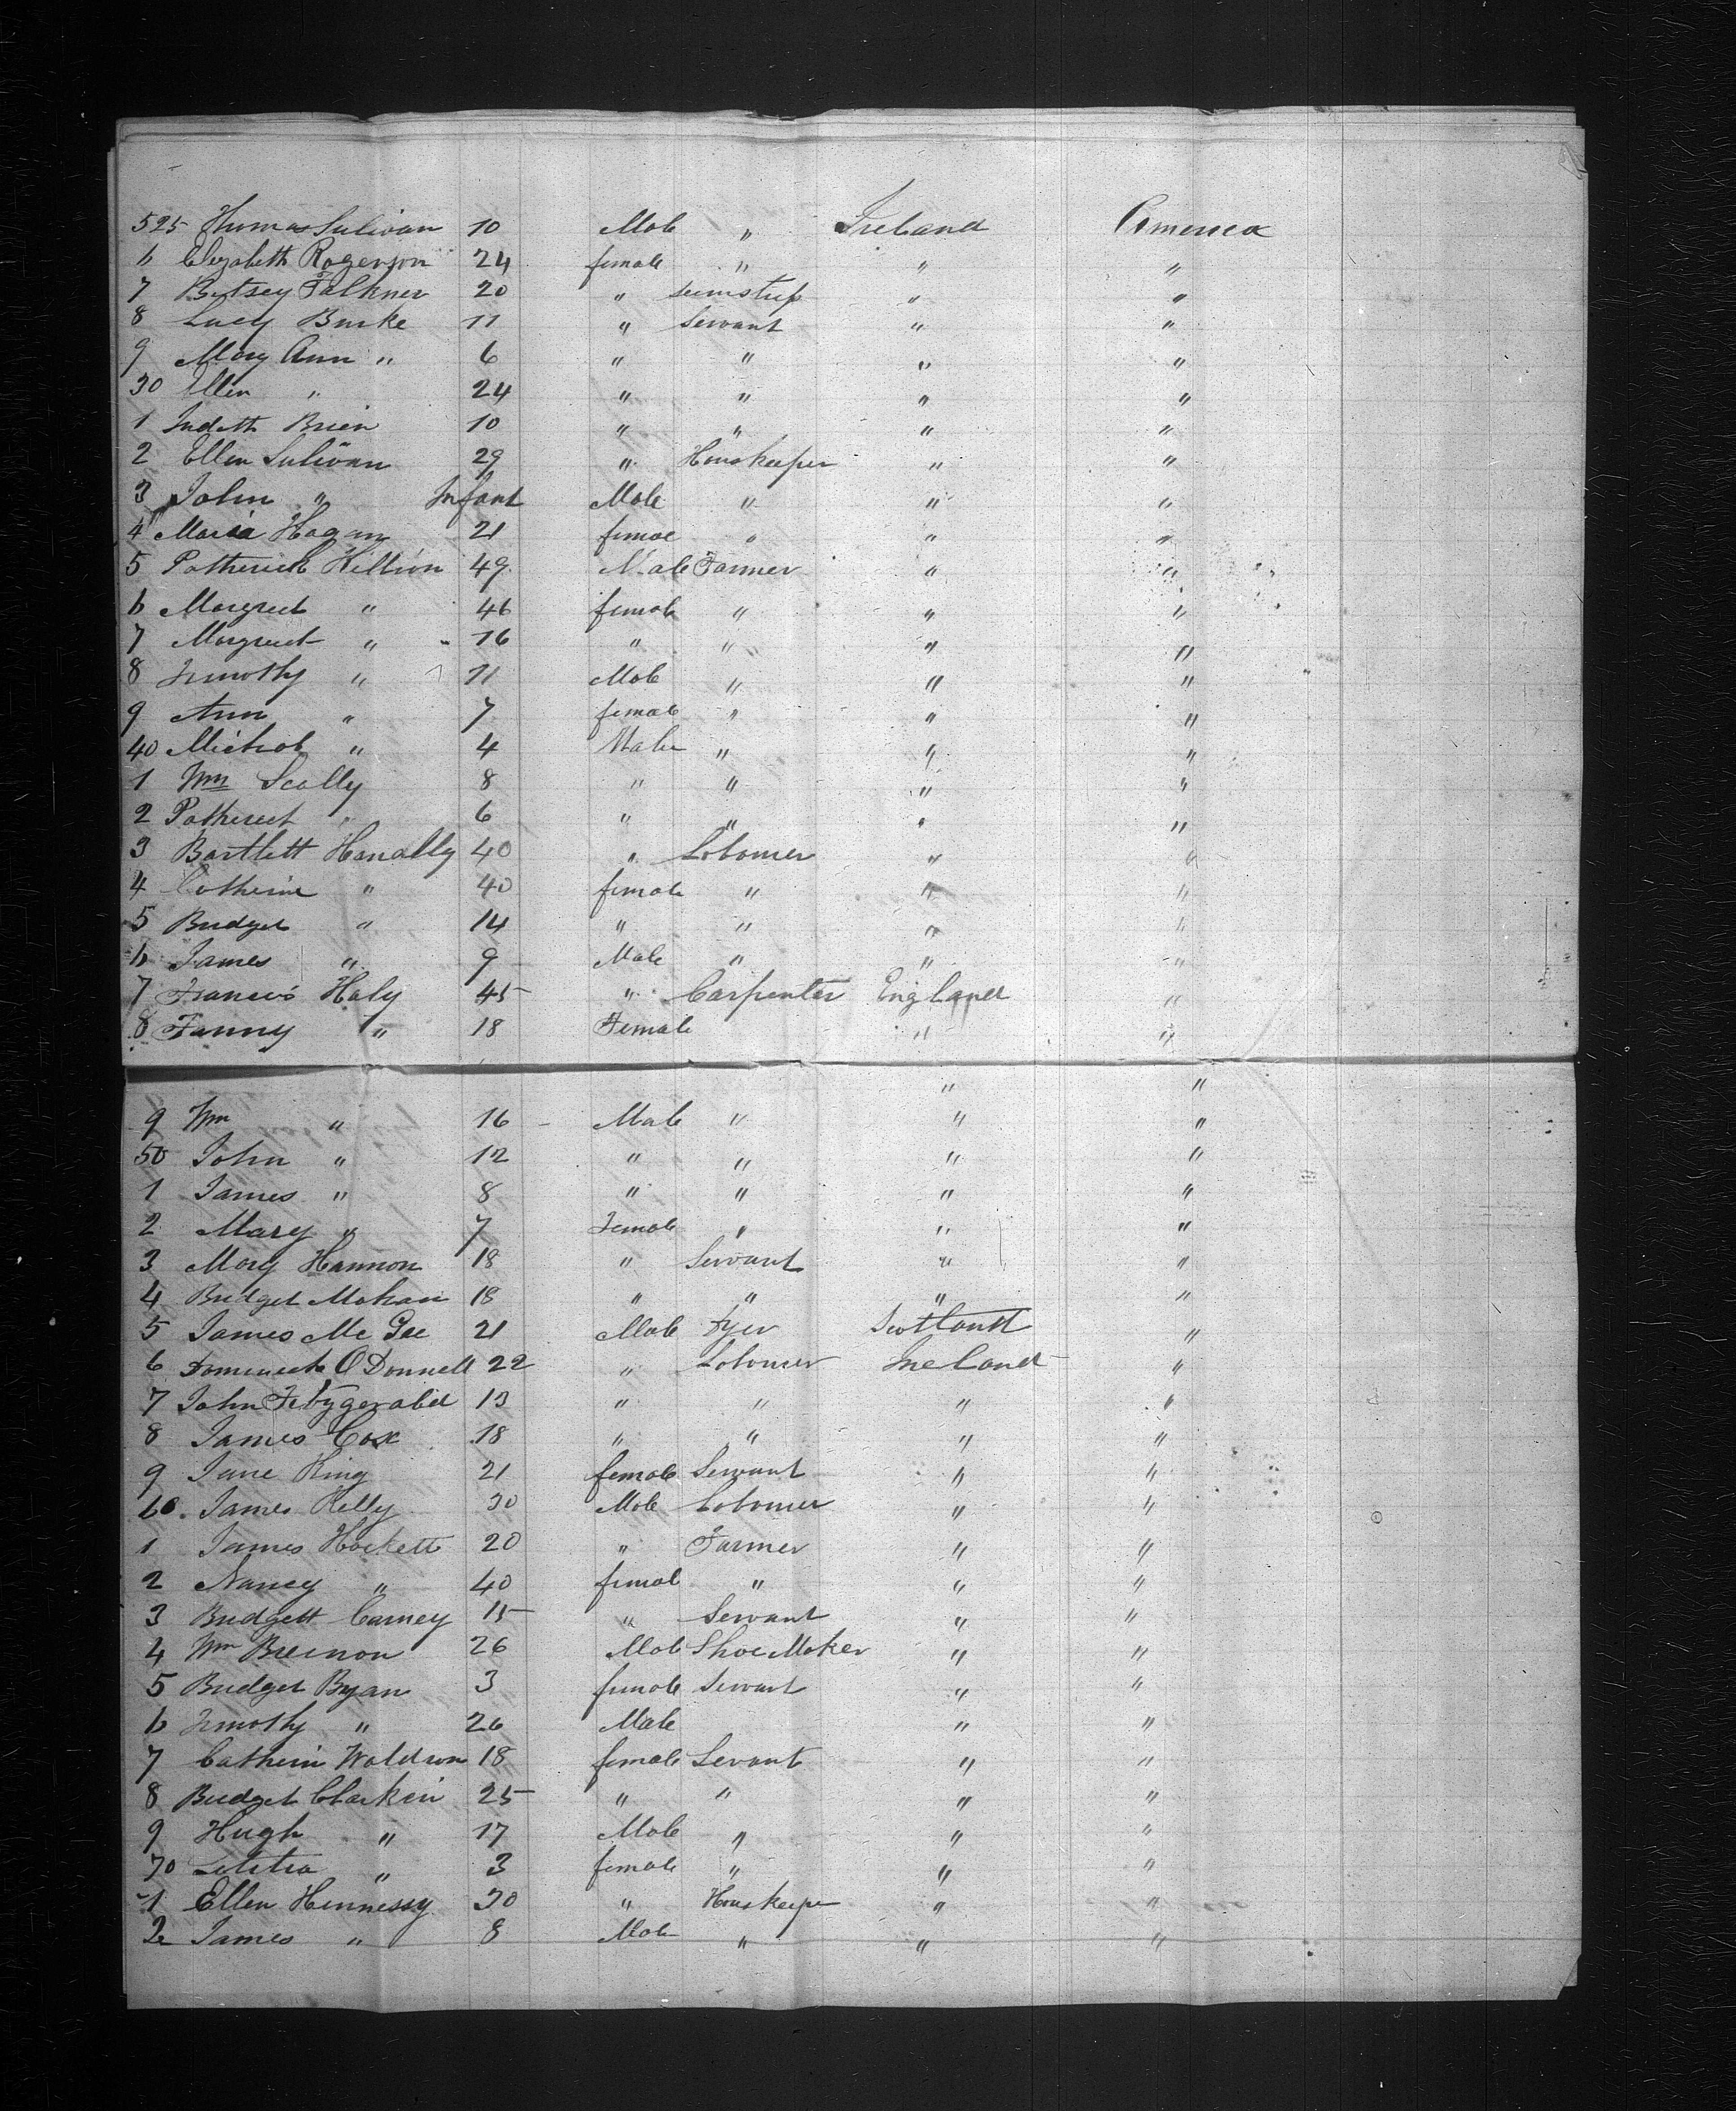 525 Thomas Sulivan 10 Male " Ireland America
6 Elizabeth Rogerson 24 female " " "
7 Betsey Falkner 20 " seemstress " "
8 Lucy Burke 11 " Servant " "
9 Mary Ann " 6 " " " "
30 Ellen " 24 " " " "
1 Judeth Brien 10 " " " "
2 Ellen Sulivan 29 " Houskeeper " "
3 John " Infant Male " " "
4 Maria Hogan 21 female " " "
5 Potherick Hillion 49 Male Farmer " "
6 Margreet " 46 female " " "
7 Margreet " 16 " " " "
8 Timothy " 11 Male " " "
9 Ann " 7 female " " "
40 Michal " 4 Male " " "
1 Wm Scally 8 " " " "
2 Potherick " 6 " " " "
3 Bartlett Hanally 40 " Labourer " "
4 Catherine " 40 female " " "
5 Bridget " 14 " " " "
6 James " 9 Male " " "
7 Francis Haly 45 " Carpenter England "
8 Fanny " 18 Female " "
" "
9 Wm " 16 Male " " "
50 John " 12 " " " "
1 James " 8 " " " "
2 Mary " 7 Female " " "
3 Mary Hannon 18 " Servant " "
4 Bridget Mohan 18 " " " "
5 James Mc Gee 21 Male Dyer Scotland "
6 Domineck O Donnell 22 " Labourer Ireland "
7 John Fitzgerald 13 " " " "
8 James Cox 18 " " " "
9 Jane King 21 female Servant " "
60 James Kelly 30 Male Labourer " "
1 James Hackett 20 " Farmer " "
2 Nancy " 40 female " " "
3 Bridgett Carney 15 " Servant " "
4 Wm Brennon 26 Male Shoe Maker " "
5 Bridget Ryan 3 female Servant " "
6 Timothy " 26 Male " "
7 Catherin Waldron 18 female Servant " "
8 Bridget Clarkin 25 " " " "
9 Hugh " 17 Male " " "
70 Letitia " 3 female " " "
1 Ellen Hennessy 30 " Houskeeper " "
2 James " 8 Male " " "